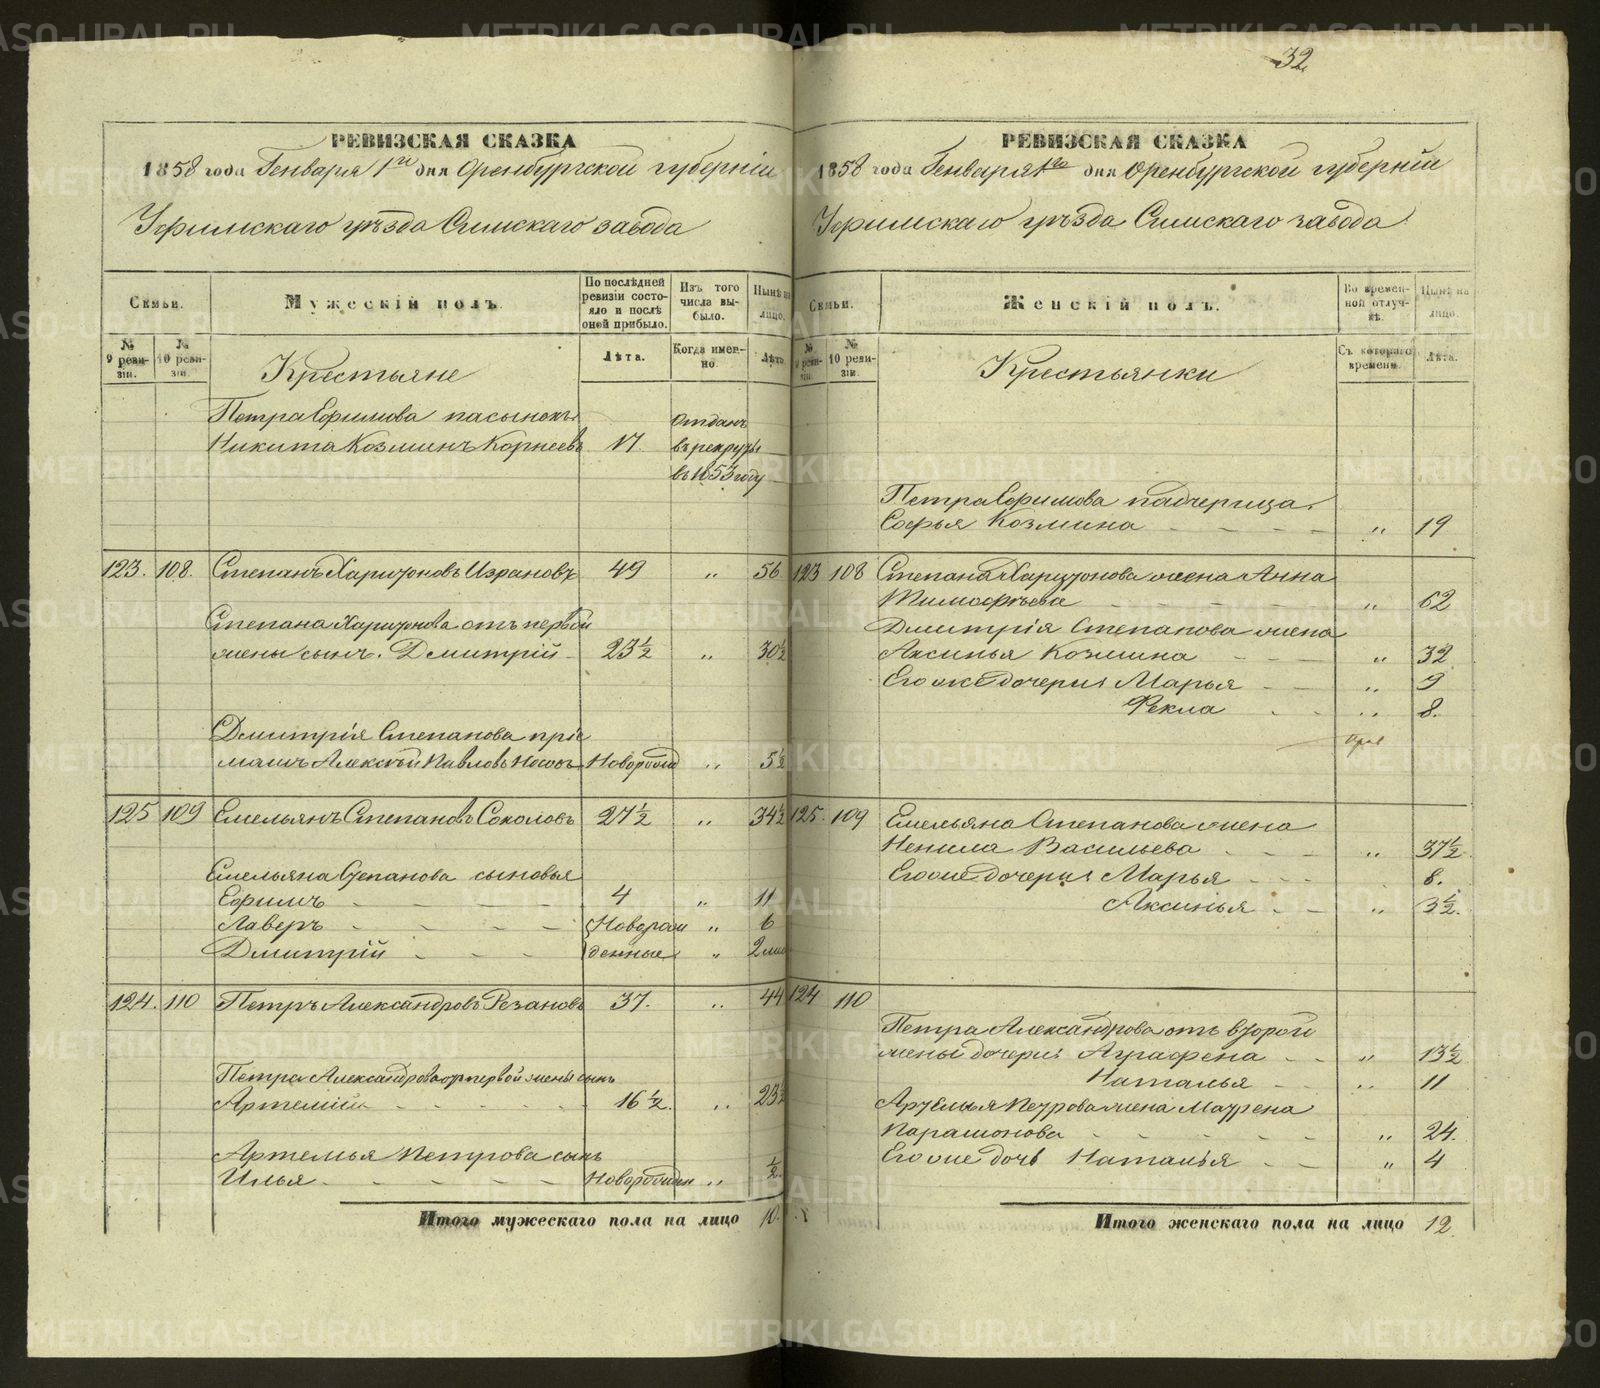 32
РЕВИЗСКАЯ СКАЗКА
1858 года Генваря 1го дня Оренбургской губерніи
Уфимскаго уѣзда Симскаго завода
Семьи.
Мужескій полъ.
По послѣдней ревизіи состояло и послѣ оной прибыло.
Изъ того числа выбыло.
Нынѣ на лицо.
№ 9 ревизіи.
№ 10 ревизіи.
Крестьяне
Лѣта.
Когда именно.
Лѣта.
Петра Ефимова пасынокъ
Никита Козминъ Корнеевъ 17. Отданъ
въ рекруты
въ 1853 году
123. 108. Степанъ Харитоновъ Израновъ 49 „ 56
Степана Харитонова отъ первой
жены сынъ. Дмитрій 23½ „ 30½
Дмитрія Степанова пріе
мышъ Алексѣй Павловъ Новорожд „ 5½
125 109 Емельянъ Степановъ Соколовъ 27½ „ 34½
Емельяна Степанова сыновья
Ефимъ 4 „ 11
Лаверъ Новорож „ 6
Дмитрій денные „ 2
124. 110 Петръ Александровъ Резановъ 37. „ 44
Петра Александрова отъ первой жены сынъ
Артемій 16½. „ 23½
Артемья Петрова сынъ
Илья Новорожден „ ½
Итого мужескаго пола на лицо 10.
РЕВИЗСКАЯ СКАЗКА
1858 года Генваря 1го дня Оренбургской губерніи
Уфимскаго уѣзда Симскаго завода
Семьи.
Женскій полъ.
Во временной отлучкѣ.
Нынѣ на лицо.
№ 9 ревизіи.
№ 10 ревизіи.
Крестьянки
Съ котораго времени.
Лѣта.
Петра Ефимова падчерица.
Софья Козмина „ 19
123 108 Степана Харитонова жена Анна
Тимофѣева „ 62
Дмитрія Степанова жена
Аксинья Козмина „ 32
Его же дочери Марья „ 9
Фекла „ 8.
125. 109 Емельяна Степанова жена
Ненила Васильева „ 37½
Его же дочери Марья 8.
Аксинья „ 3½.
124 110
Петра Александрова отъ второй
жены дочери Аграфена „ 13½
Наталья „ 11
Артемья Петрова жена Маврена
Парамонова „ 24.
Его же дочь Наталья „ 4
Итого женскаго пола на лицо 12.
METRIKI.GASO-URAL.RU